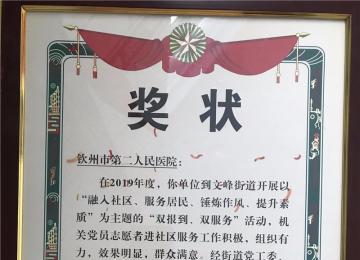 奖状
钦州市第二人民医院:
在2019年度，你单位到文峰街道开展以
“融入社区、服务居民、锤炼作风、提升素
质”为主题的“双报到、双服务”活动，机
关党员志愿者进社区服务工作积极，组织有
力，效果明显，群众满意。经街道党工委、